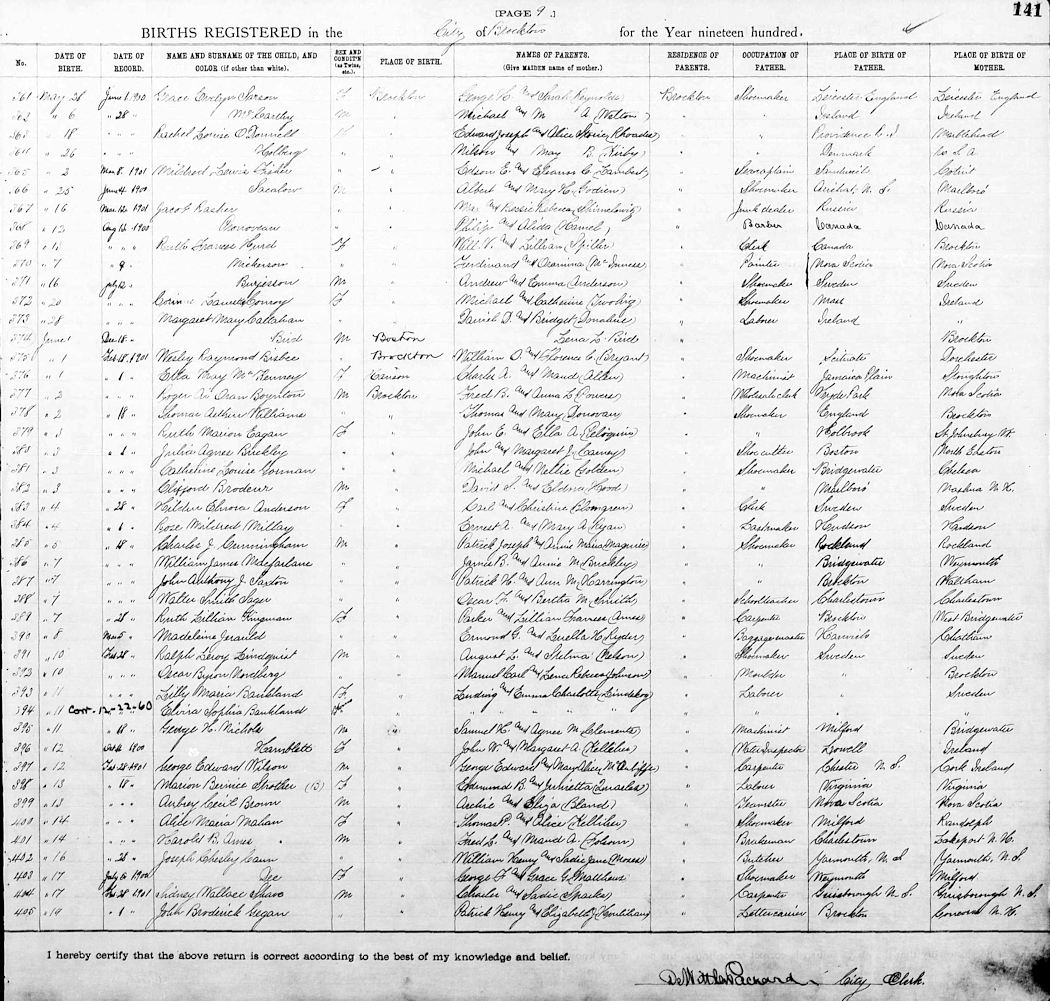 [PAGE 9.] 141
BIRTHS REGISTERED in the City of Brockton for the Year nineteen hundred.
No. DATE OF BIRTH. DATE OF RECORD. NAME AND SURNAME OF THE CHILD, AND COLOR (if other than white). SEX AND CONDIT'N (as Twins, etc.). PLACE OF BIRTH. NAMES OF PARENTS. (Give MAIDEN name of mother.) RESIDENCE OF PARENTS. OCCUPATION OF FATHER. PLACE OF BIRTH OF FATHER. PLACE OF BIRTH OF MOTHER.
361 May 28 June 1 1900 Grace Evelyn Sarson F Brockton George H. and Sarah Reynolds Brockton Shoemaker Leicester England Leicester England
362 " 6 " 28 " McCarthy " Michael and M A (Walton) " Ireland Ireland
363 " 18 " " " Rachel Louise O'Donnell " Edward Joseph and Alice (Rhoades) " " Providence R.I. Marblehead
364 " 26 " " " Holberg " " Nilson and May B. (Kirby) " " Denmark U.S.A.
365 " 2 1901 Mildred Lewis Fisher " " Edson E. and Eleanor C. (Lambert) " Sandwich Cotuit
366 " 25 June 4 1900 M " Albert and Mary H. " Shoemaker N.S. Marlboro
367 " 16 1901 Jacob Kasher " " Max and Bessie Rebecca " Junk dealer Russia Russia
368 " 12 Aug 1900 Donovan " " Philip and Alida (Hamel) " Barber Canada Canada
369 " " " " Ruth Frances Hurd F " Will V. and Lillian (Spiller) " Clerk Canada Brockton
370 " 7 " 9 " Nickerson " " Ferdinand and (McInness) " Painter Nova Scotia Nova Scotia
371 " 16 July 2 " Burjesson M " Andrew and Emma (Anderson) " Shoemaker Sweden Sweden
372 " 20 " " " Conroy F " Michael and Catherine " Shoemaker Mass Ireland
373 " 28 " " " Margaret Mary Callahan " " Daniel D. and Bridget (Donahue) " Laborer Ireland "
374 June 1 Dec 18 " Bird M Boston Lena L. Bird " Brockton
375 " 1 Feb 18 1901 Wesley Raymond Bisbee " Brockton William O. and Florence C. (Bryant) Shoemaker Scituate Dorchester
376 " 1 " 1 " Etta May McKenney F Hanson Charles A. and Maud (Allen) " Machinist Jamaica Plain Stoughton
377 " 2 " " " Roger Boynton M Brockton Fred B. and Anna L. (Powers) " Wholesale clerk Hyde Park Nova Scotia
378 " 2 " 18 " Thomas Arthur Williams " " Thomas and Mary (Donovan) " Shoemaker England Brockton
379 " 3 " " " Ruth Marion Eagan F " John E. and Ella A. (Peloquin) " " Holbrook St. Johnsbury Vt.
380 " 3 " 1 " Julia Agnes Buckley " " John and Margaret J. (Carney) " Shoecutter Boston North Easton
381 " 3 " " " Catherine Louise Gorman " " Michael and Nellie (Golden) " Shoemaker Bridgewater Chelsea
382 " 3 " " " Clifford Brodeur M " David S. and Eldora (Hood) " " Marlboro Nashua N.H.
383 " 4 " 28 " Hilder Elnora Anderson F " Carl and Christine (Blomgren) " Clerk Sweden Sweden
384 " 4 " 1 " Rose Mildred Millay " " Ernest A. and Mary A. (Ryan) " Lastmaker Hudson Hudson
385 " 5 " 18 " Charles J. Cunningham M " Patrick Joseph and Annie Maria (Maguire) " Shoemaker Rockland Rockland
386 " 7 " " " William James McFarlane " " James B. and Annie M. (Brickley) " " Bridgewater Weymouth
387 " 7 " " " John Anthony J. Saxton " " Patrick H. and Ann M. (Harrington) " " Brockton Waltham
388 " 7 " " " Walter Smith Sager " " Oscar F. and Bertha M. (Smith) " Schoolteacher Charlestown Charlestown
389 " 7 " 28 " Ruth Lillian Kingman F " Parker and Lillian Frances (Ames) " Carpenter Brockton West Bridgewater
390 " 8 Mar 5 " Madeleine Jerauld " " Ermond G. and Luella H. (Ryder) " Baggagemaster Harwich Chatham
391 " 10 Feb 28 " Ralph Leroy Lindquist M " August L. and Selma (Nelson) " Shoemaker Sweden Sweden
392 " 10 " " " Oscar Byron Nordberg " " Manuel Carl and Lena Rebecca (Johnson) " Moulder " Brockton
393 " 11 " " " Lilly Maria Bankland F " Ludwig and Emma Charlotte (Lindskog) " Laborer " Sweden
394 " 11 Corr. 12-22-60 Elvira Sophia Bankland F " " " " " " "
395 " 11 " 18 " George H. Nichols M " Samuel H. and Agnes M. (Clements) " Machinist Milford Bridgewater
396 " 12 Oct 1900 Hamblett F " John W. and Margaret A. (Kelleher) " Water Inspector Lowell Ireland
397 " 12 Feb 28 1901 George Edward Wilson M " George Edward and Mary Alice (McAuliffe) " Carpenter Chester N.S. Cork Ireland
398 " 13 " 18 " Marion Bernice Strother (B) F " Edmund B. and Julrietta (Quarles) " Laborer Virginia Virginia
399 " 13 " " " Aubrey Cecil Brown M " Archie and Eliza (Bland) " Teamster Nova Scotia Nova Scotia
400 " 14 " " " Alice Maria Mahan F " Thomas P. and Alice (Kelliher) " Shoemaker Milford Randolph
401 " 14 " " " Harold B. Ames M " Fred L. and Maud A. (Folsom) " Brakeman Charlestown Lakeport N.H.
402 " 16 " 28 " Joseph Chesley Cann " " William Henry and Sadie Jane (Moses) " Butcher Yarmouth, N.S. Yarmouth, N.S.
403 " 17 July 6 1900 Dee F " George F. and Grace G. Matthews " Shoemaker Weymouth Milford
404 " 17 Feb 28 1901 Sidney Wallace Shaw M " Charles and Sadie (Sparks) " Carpenter Guysborough N.S. Guysborough N.S.
405 " 19 " 1 " John Broderick Gegan " " Patrick Henry and Elizabeth J. (Hourihan) " Lettercarrier Brockton Concord N.H.
I hereby certify that the above return is correct according to the best of my knowledge and belief.
DeWitt C. Packard, City Clerk.